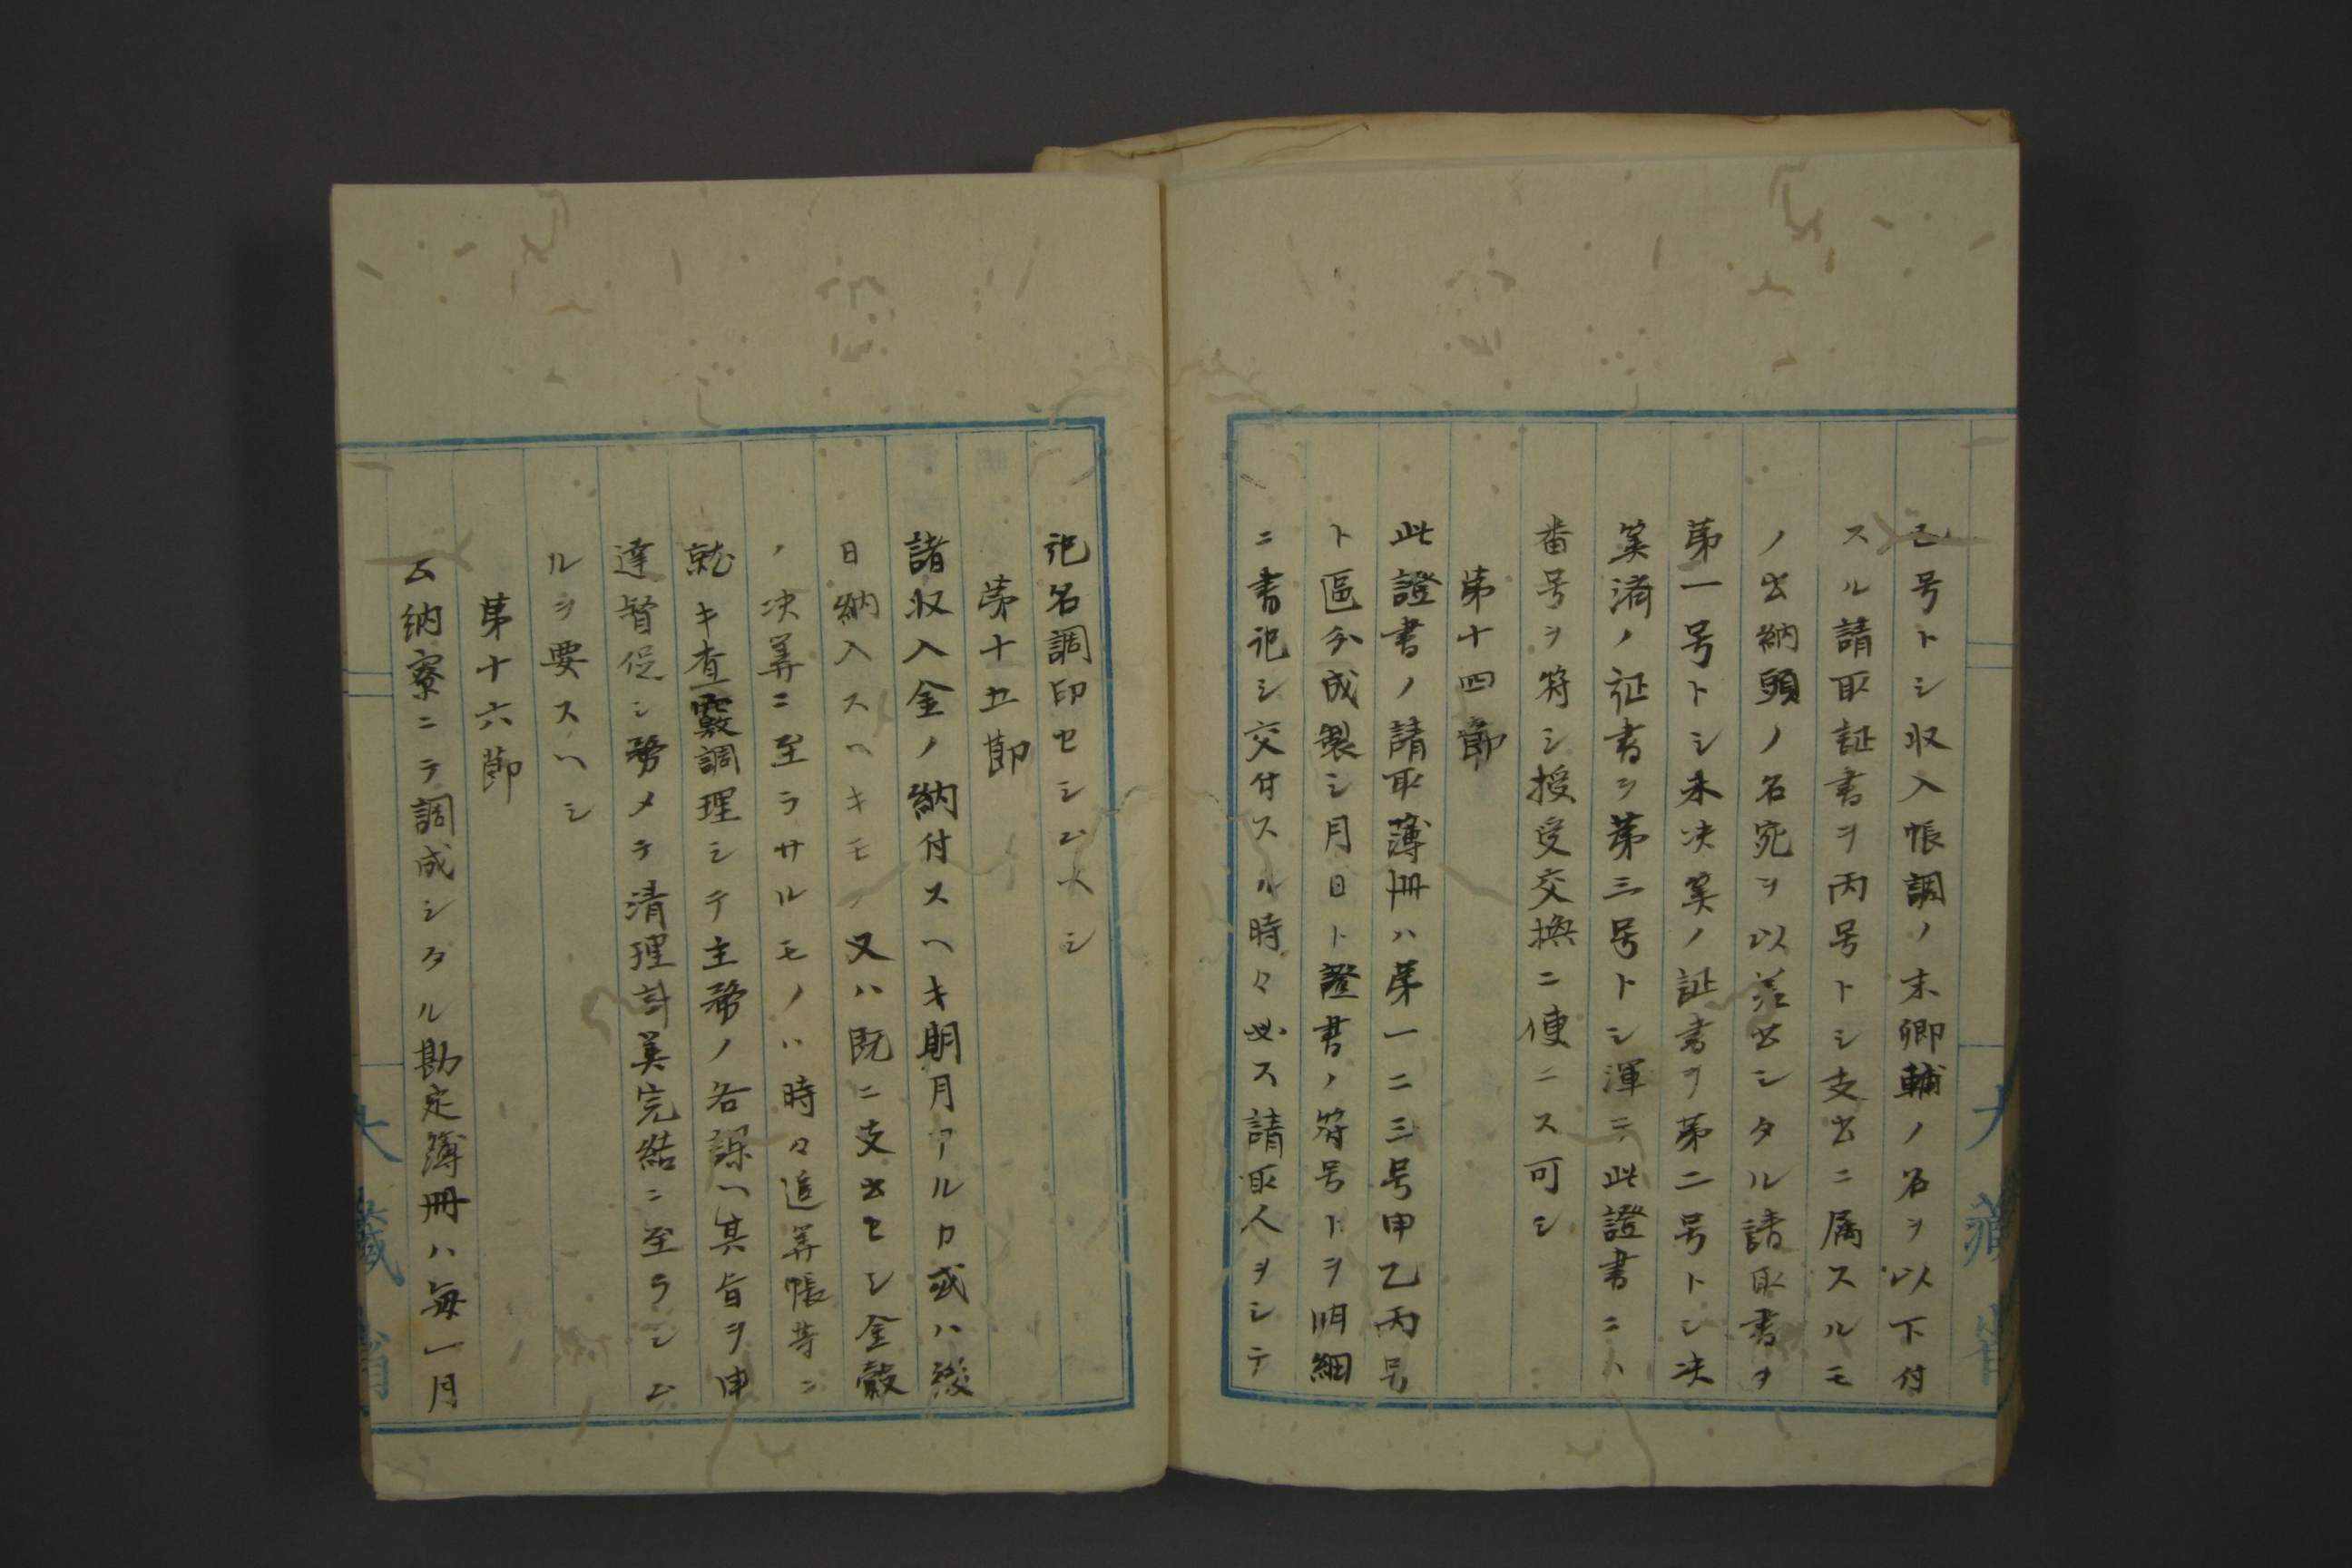 乙号トシ収入帳調ノ末卿輔ノ名ヲ以下付
スル請取証書ヲ丙号トシ支出ニ属スルモ
ノ出納頭ノ名宛ヲ以差出シタル請取書ヲ
第一号トシ未决筭ノ証書ヲ第二号トシ决
筭済ノ証書ヲ第三号トシ渾テ此證書ニハ
番号ヲ符シ授受交換ニ便ニス可シ
第十四節
此證書ノ請取薄冊ハ第一二三号甲乙丙号
ト區分成製シ月日ト證書ノ符号トヲ明細
ニ書記シ交付スル時々必ス請取人ヲシテ
記名調印セシムヘシ
第十五節
諸収入金ノ納付スヘキ期月アルカ或ハ後
日納入スヘキモノ又ハ既ニ支出セシ金穀
ノ决算ニ至ラサルモノハ時々追算帳等ニ
就キ査覈調理シテ主務ノ各課ヘ其旨ヲ申
達督促シ務メテ清理計筭完結ニ至ラシム
ルヲ要スヘシ
第十六節
出納寮ニテ調成シタル勘定簿冊ハ毎一月
大藏省
大藏省